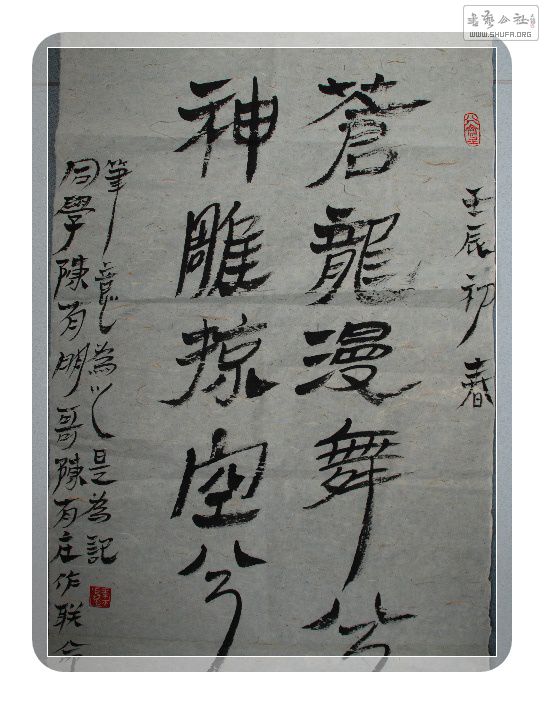 書藝公社
WWW.SHUFA.ORG
壬辰初春
蒼龍漫舞兮
神雕掠空兮
同學陳有朋哥陳有庄作联命
筆為是為記